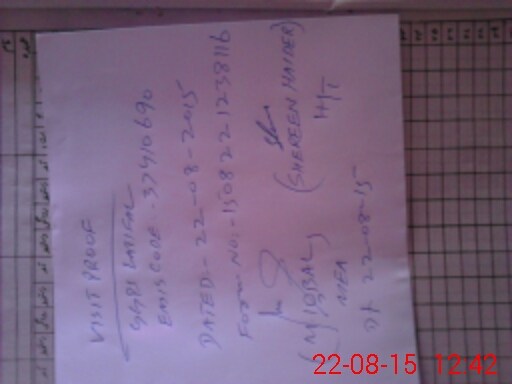 VISIT PROOF
EMIS CODE:- 37410690
DATED:- 22-08-2015
Form NO:- 150822123811b
(M IQBAL)
MEA
Dt 22-08-15
(SHEREEN HAIDER)
H/T
22-08-15 12:42